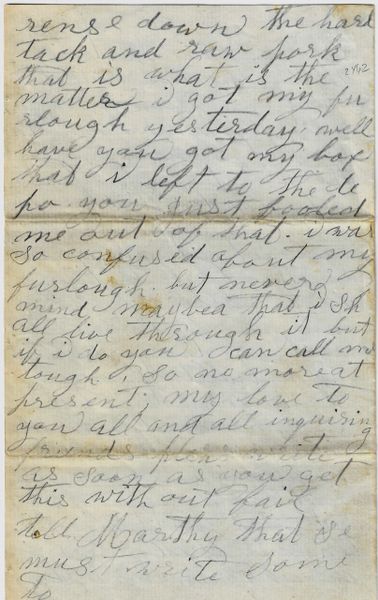 rense down the hard
tack and raw pork
that is what is the
2962
matter i got my fu
rlough yesterday well
have you got my box
that i left to the de
po. you just fooled
me out of that. i was
so confused about my
furlough. but never
mind maybea that i sh
all live through it but
if i do you can call me
tough. so no more at
present, my love to
you all and all inquiring
friends pleas write
as soon as you get
this with out fail
tell Marthy that se
must write some
To